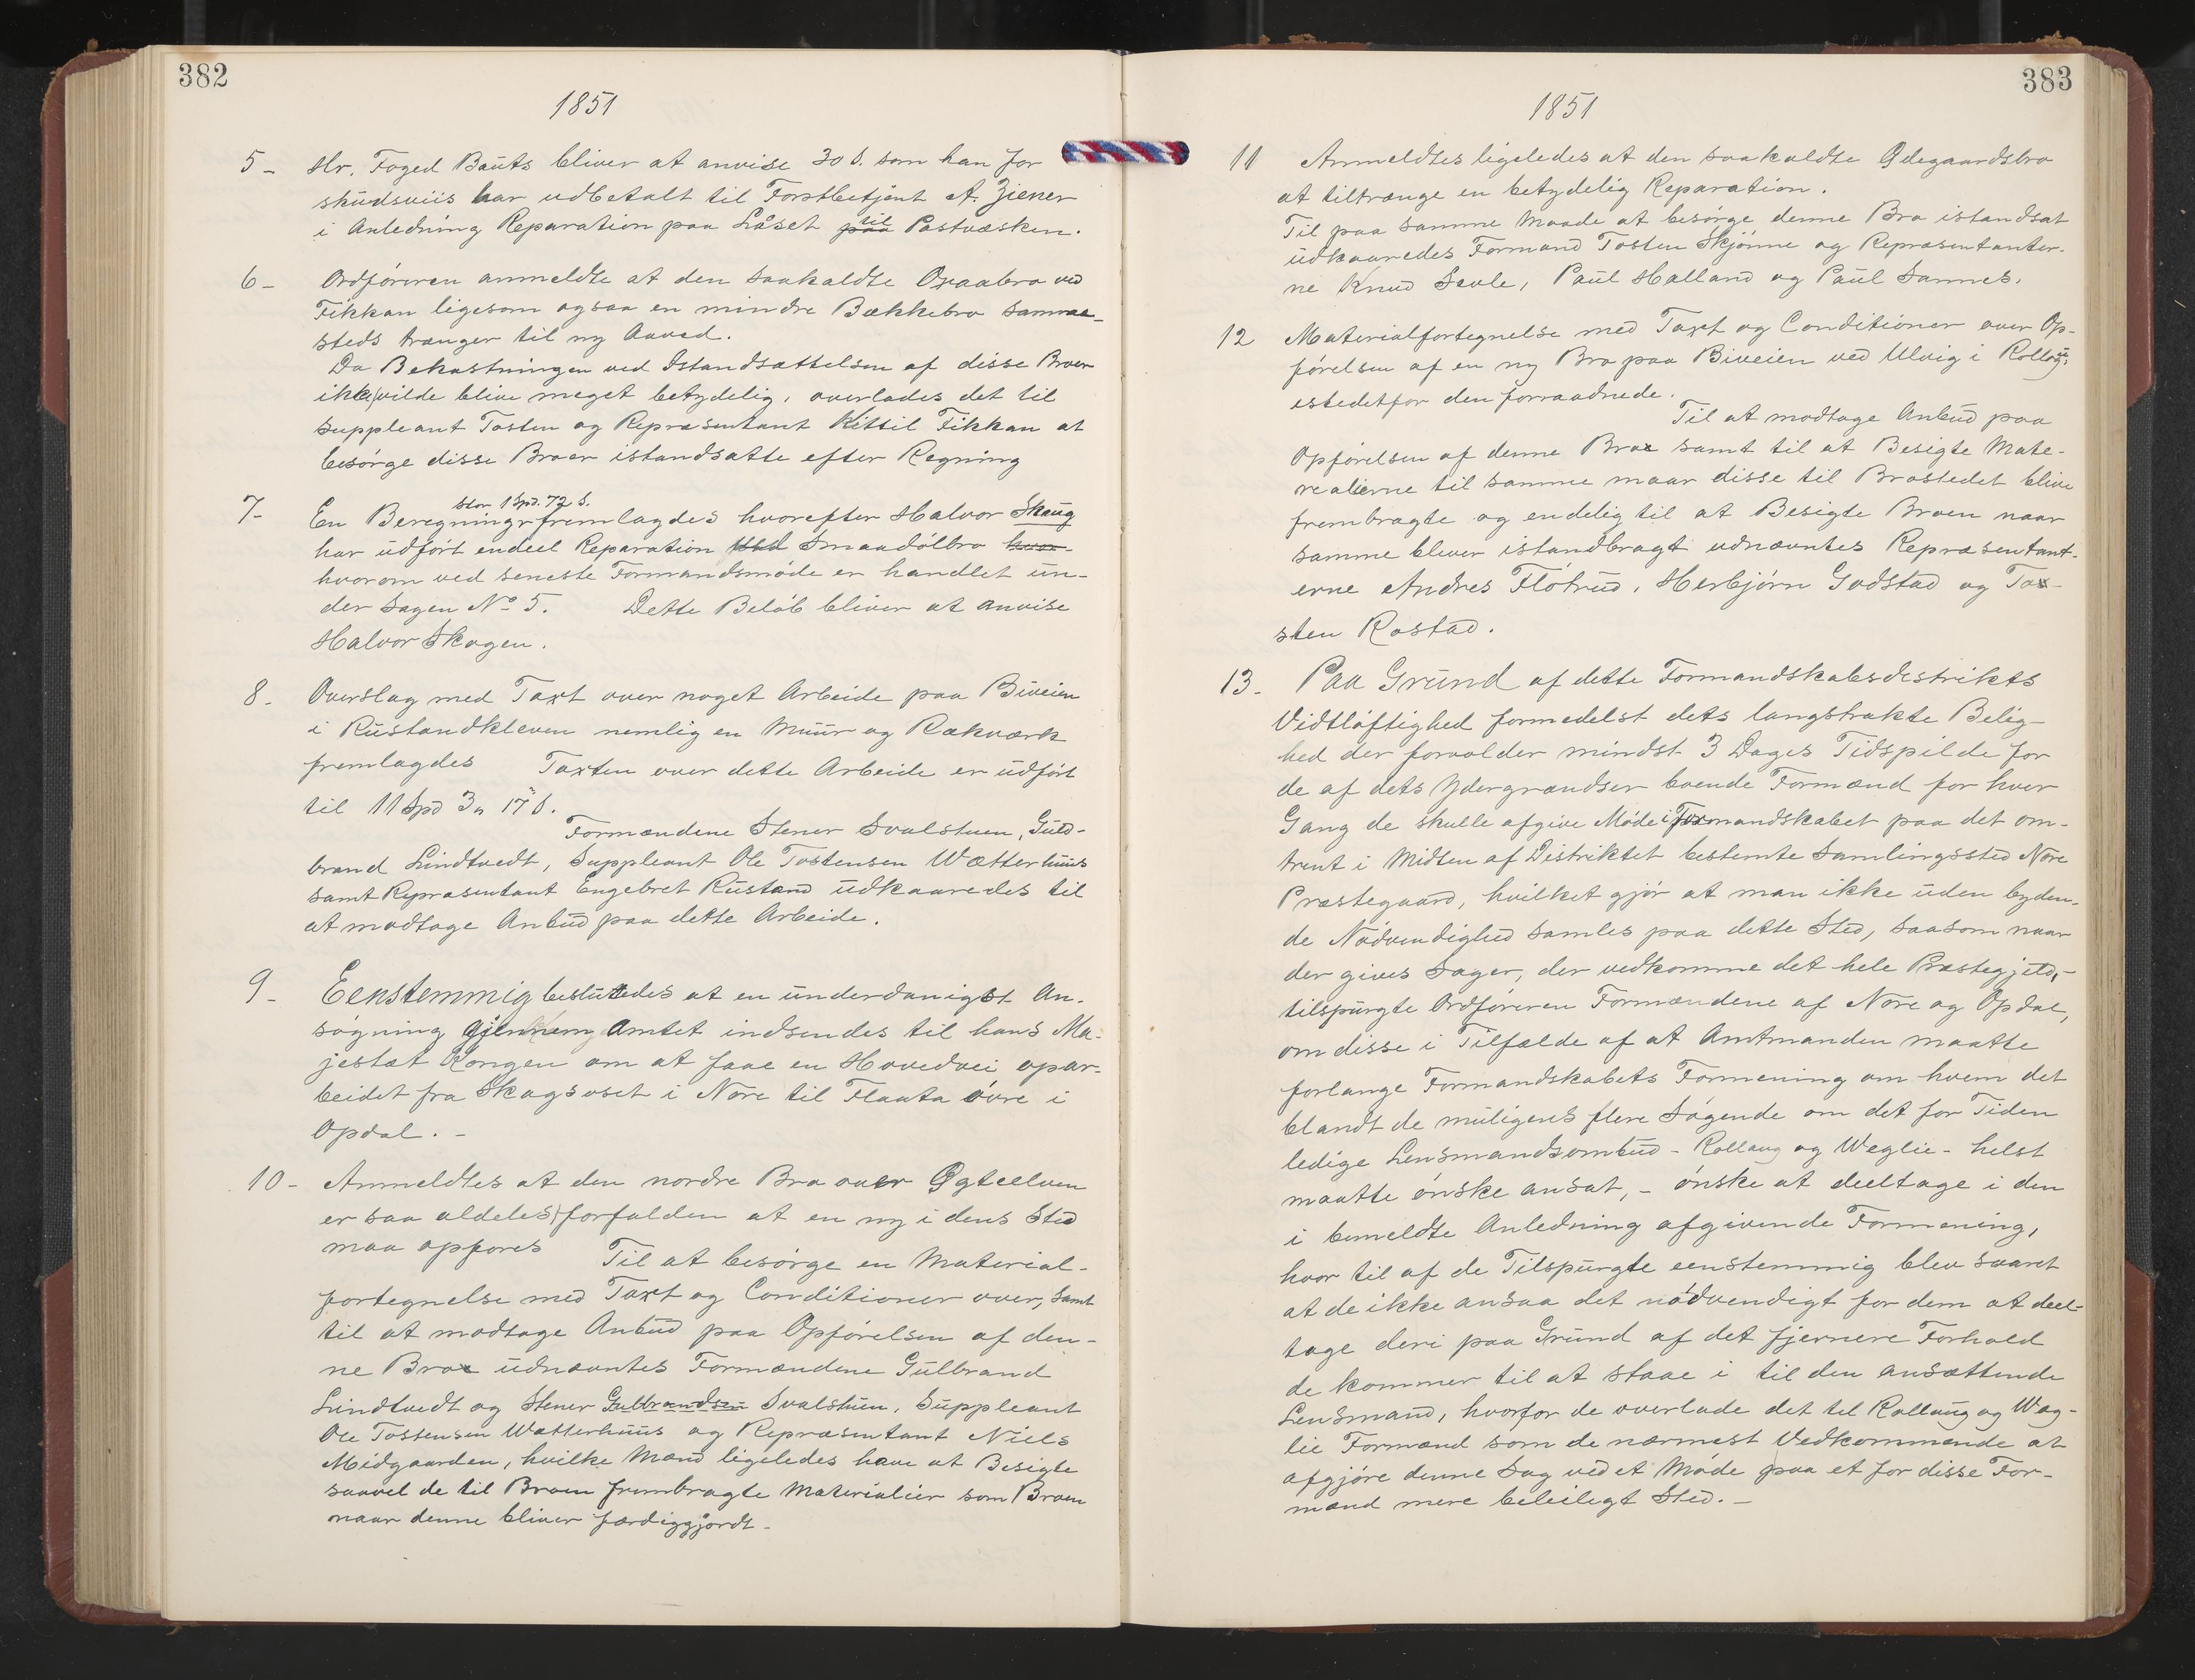 382
1851
5 - Hr. Foged Bauts bliver at anvise 30 s. som han for
skudsviis har udbetalt til Forstbetjent A. Ziener
i Anledning Reparation paa Låset paa til Postvæsken.
6 - Ordføreren anmeldte at den saakaldte Oxaabro ved
Fikkan ligesom ogsaa en mindre Bækkebro samme-
steds trænger til ny Aaved.
Da Bekostningen ved Istandsættelsen af disse Broer
ikke vilde blive meget betydelig, overlades det til
Suppleant Tosten og Repræsentant Kittil Fikkan at
besørge disse Broer istandsatte efter Regning
7 - En Beregning stor 1 Spd. 72 s. fremlagdes hvorefter Halvor Skaug
har udført endeel Reparation ved Smaadølbro hvor-
hvorom ved seneste Formandsmøde er handlet un-
der Sagen No 5. Dette Beløb bliver at anvise
Halvor Skogen.
8 - Overslag med Taxt over noget Arbeide paa Biveien
i Rustandkleven nemlig en Muur og Rækværk
fremlagdes Taxten over dette Arbeide er udført
til 11 Spd 3 " 17 s.
Formændene Stener Svalstuen, Guld-
brand Lindtvedt, Suppleant Ole Tostensen Wætterhuus
samt Repræsentant Engebret Rustand udkaaredes til
at modtage Anbud paa dette Arbeide.
9 - Eenstemmig besluttedes at en underdanigst An-
søgning gjennem Amtet indsendes til hans Ma-
jestæt Kongen om at faae en Hovedvei opar-
beidet fra Skogsoset i Nore til Flaata øvre i
Opdal. -
10 - Anmeldtes at den nordre Bro over Øgteelven
er saa aldeles forfalden at en ny i dens Sted
maa opføres Til at besørge en Material-
fortegnelse med Taxt og Conditioner over, samt
til at modtage Anbud paa Opførelsen af den-
ne Bro udnævntes Formændene Gulbrand
Lindtvedt og Stener Gulbrandsen Svalstuen, Suppleant
Ole Tostensen Wætterhuus og Repræsentant Niels
Midgaarden, hvilke Mænd ligeledes have at Besigte
saavel de til Broen frembragte Materialier som Broen
naar denne bliver færdiggjordt -
383
1851
11 Anmeldtes ligeledes at den saakaldte Ødegaardsbro
at tiltrænge en betydelig Reparation.
Til paa samme Maade at besørge denne Bro istandsat
udkaaredes Formand Tosten Skjønne og Repræsentanter-
ne Knud Sevle, Paul Halland og Paul Sannes.
12 Materialfortegnelse med Taxt og Conditioner over Op-
førelsen af en ny Bro paa Biveien ved Ulvig i Rollag
istedetfor den forraadnede.
Til at modtage Anbud paa
Opførelsen af denne Bro samt til at Besigte Mate-
realierne til samme naar disse til Brostedet blive
frembragte og endelig til at Besigte Broen naar
samme bliver istandbragt udnævntes Repræsentant-
erne Andres Fløtrud, Herbjørn Godstad og To-
sten Rostad.
13 - Paa Grund af dette Formandskabsdestrikts
Vidtløftighed formedelst dets langstrakte Belig-
hed der forvolder mindst 3 Dages Tidspilde for
de af dets Ydergrændser boende Formænd for hver
Gang de skulle afgive Møde i Formandskabet paa det om-
trent i Midten af Distriktet bestemte Samlingssted Nore
Præstegaard, hvilket gjør at man ikke uden byden-
de Nødvendighed samles paa dette Sted, saasom naar
der gives Sager, der vedkomme det hele Præstegjeld, -
tilspurgte Ordføreren Formændene af Nore og Opdal,
om disse i Tilfælde af at Amtmanden maatte
forlange Formandskabets Formening om hvem det
blandt de muligens flere Søgende om det for Tiden
ledige Lensmandsombud - Rollaug og Weglie - helst
maatte ønske ansat, - ønske at deeltage i den
i bemeldte Anledning afgivende Formening,
hvor til af de Tilspurgte eenstemmig blev svaret
at de ikke ansaa det nødvendigt for dem at deel-
tage deri paa Grund af det fjernere Forhold
de kommer til at staae i til den ansættende
Lensmand, hvorfor de overlade det til Rollaug og Weg-
lie Formænd som de nærmest Vedkommende at
afgjøre denne Sag ved et Møde paa et for disse For-
mænd mere beleiligt Sted. -